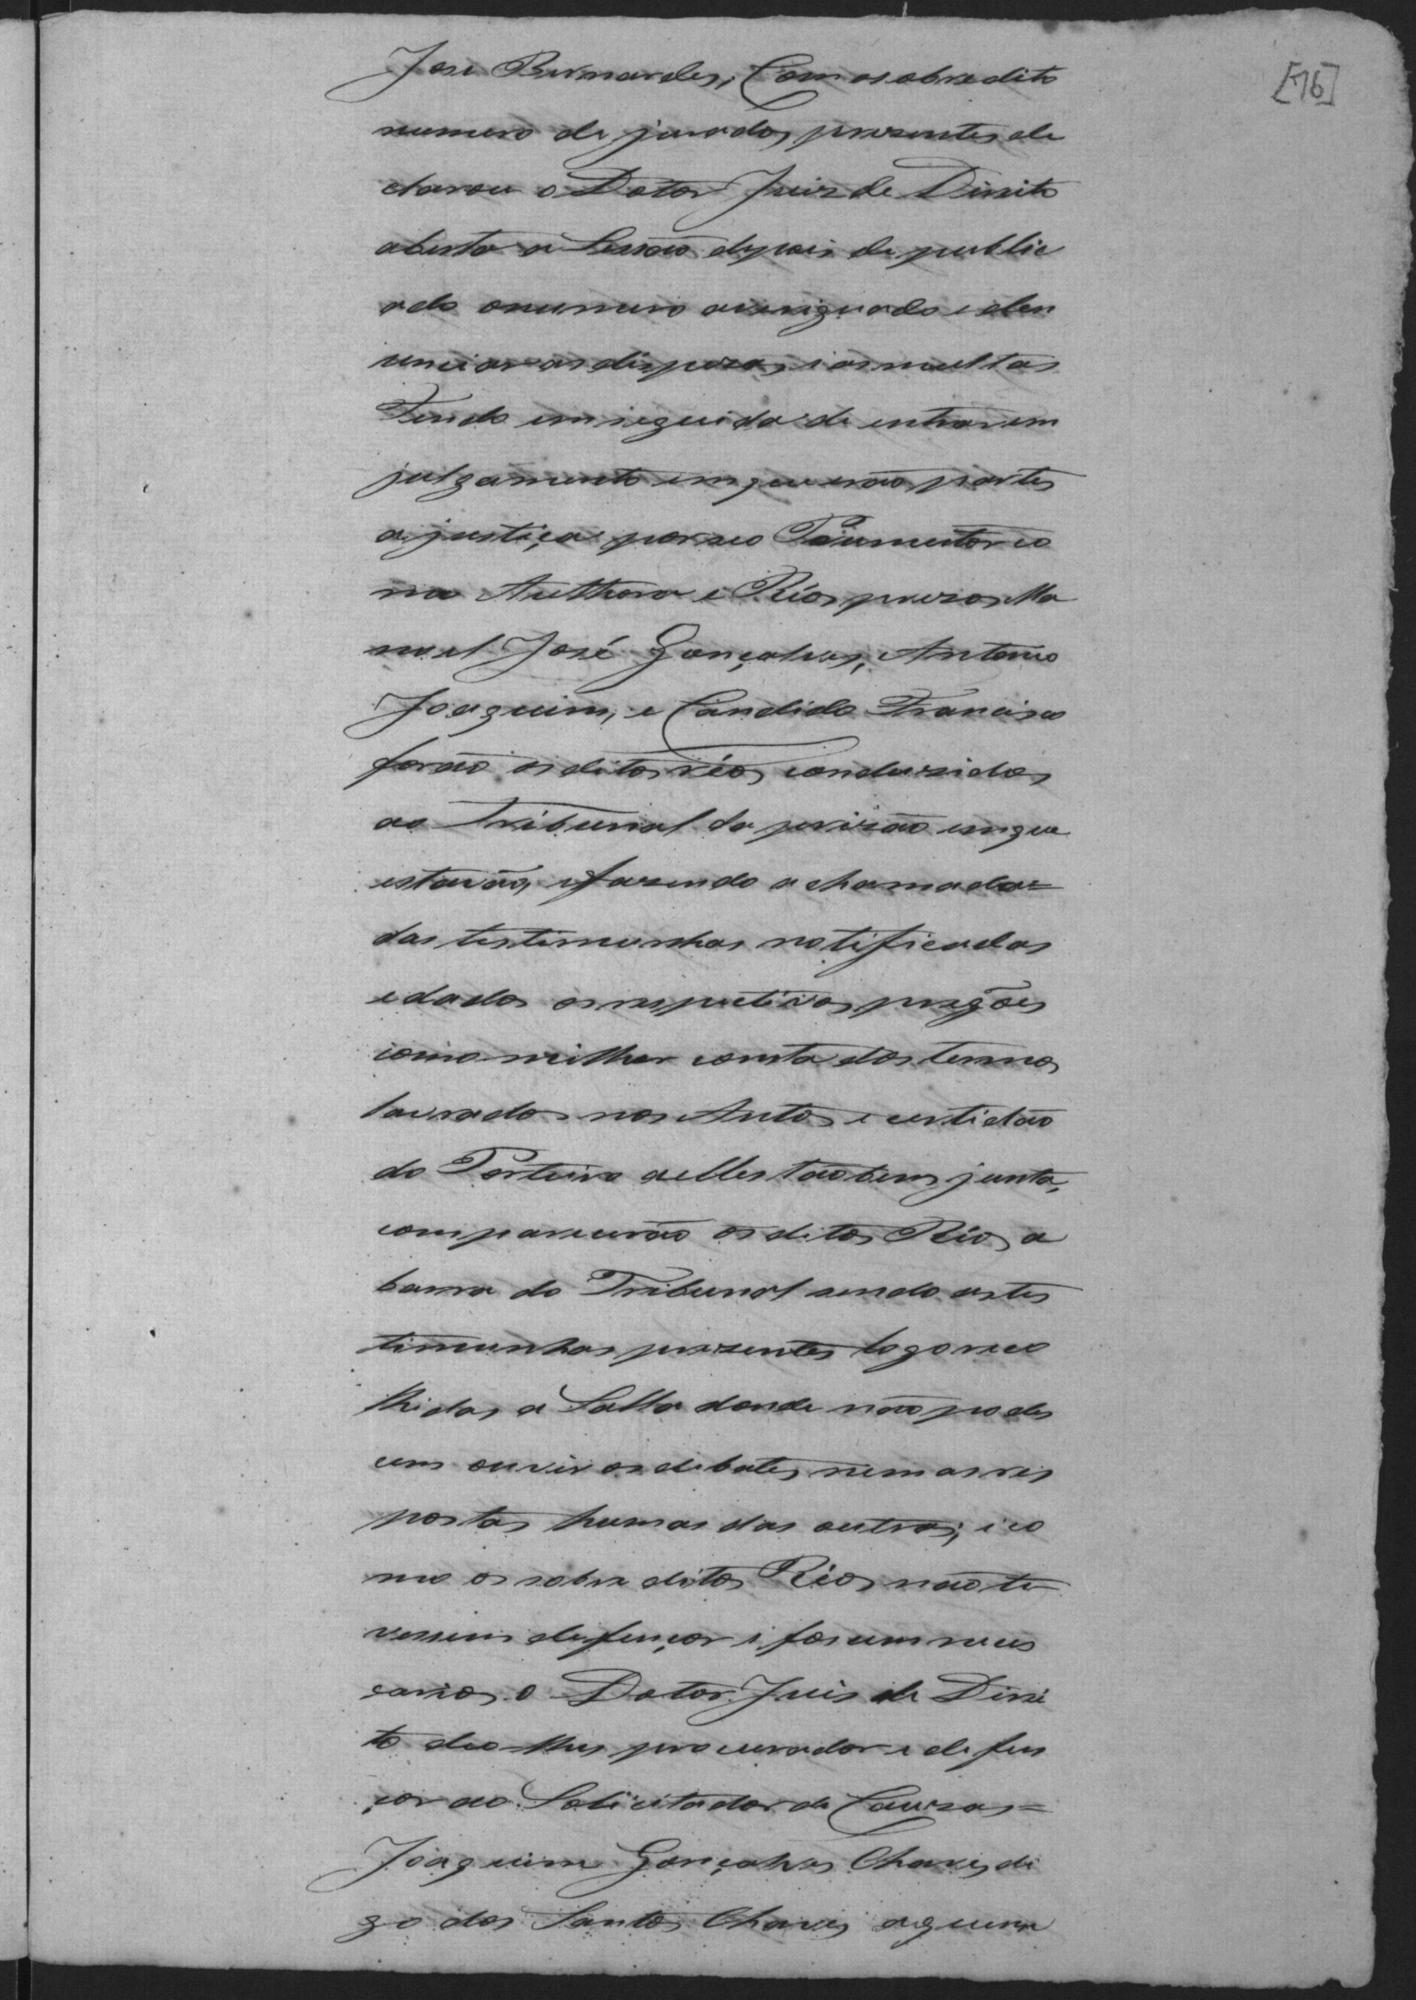 [76]
José Bernardes, Com o sobredito
numero de jurados presentes de
clarou o Dotor Juiz de Direito
aberta a Sessão depois de public
ado o numero averiguado e den
unciar as dispezas e as multas
Tendo em seguida de entrar em
julgamento em que erão partes
a justiça por seo Promotor co
mo Authora e Réos prezos Ma
noel José Gonçalves, Antonio
Joaquim, e Candido Francisco
forão os ditos réos conduzidos
ao Tribunal da prizão em que
estavão, e fazendo a chamada=
das testemunhas notificadas
e dados os respectivos pregões
como milhor consta dos termos
lavrados nos Autos e certidão
do Porteiro a elles tãobem junta,
comparecerão os ditos Réos a
barra do Tribunal sendo as tes
timunhas prezentes logo reco
lhidas a Salla donde não podes
cem ouvir os debates nem as res
postas humas das outras; e co
mo os sobre ditos Réos não ti
vessem defençor e forem neces
carios o Dotor Juis de Direi
to deo lhes procurador e defen
çor ao Solicitador de Cauzas=
Joaquim Gonçalves Chaves di
go dos Santos Chaves a quem